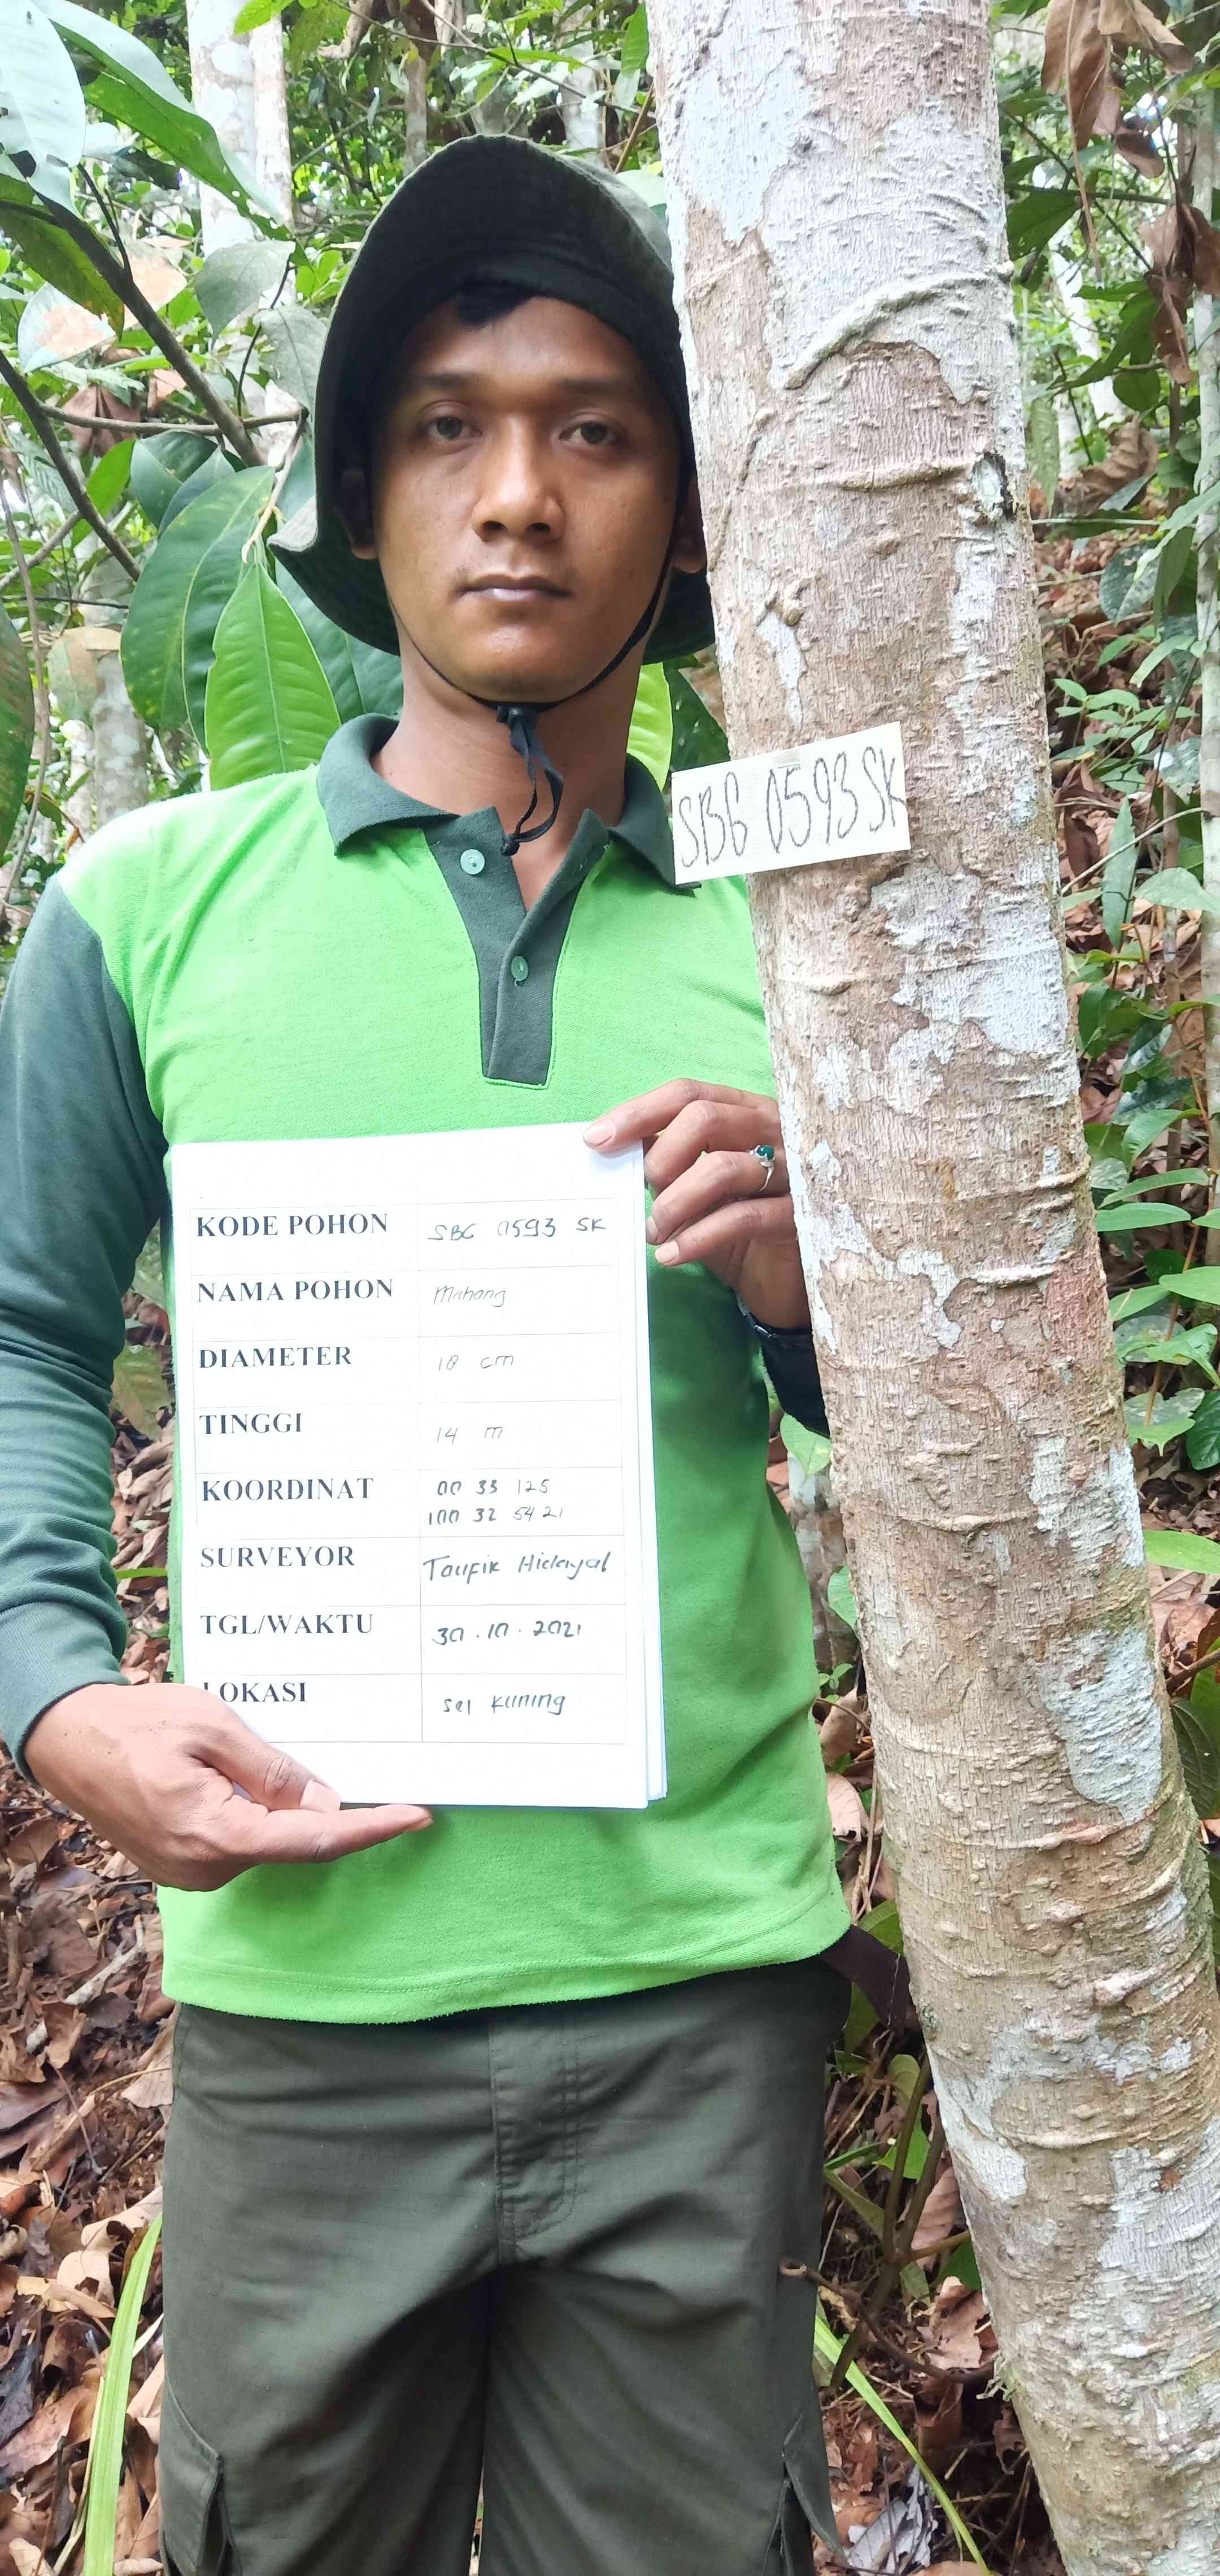 SBG 0593 SK
KODE POHON SBG 0593 SK
NAMA POHON Mahang
DIAMETER 18 cm
TINGGI 14 m
KOORDINAT 00 33 125
100 32 5421
SURVEYOR Taufik Hidayat
TGL/WAKTU 30.10.2021
LOKASI sei kuning